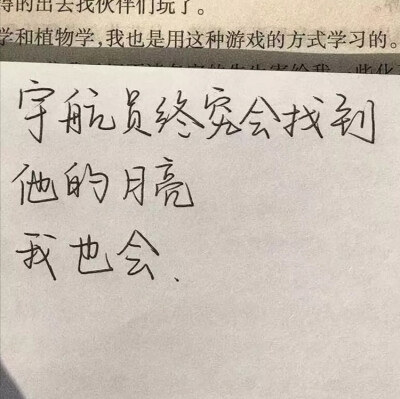 得的出去找伙伴们玩了。
学和植物学,我也是用这种游戏的方式学习的。
宇航员终究会找到
他的月亮
我也会、